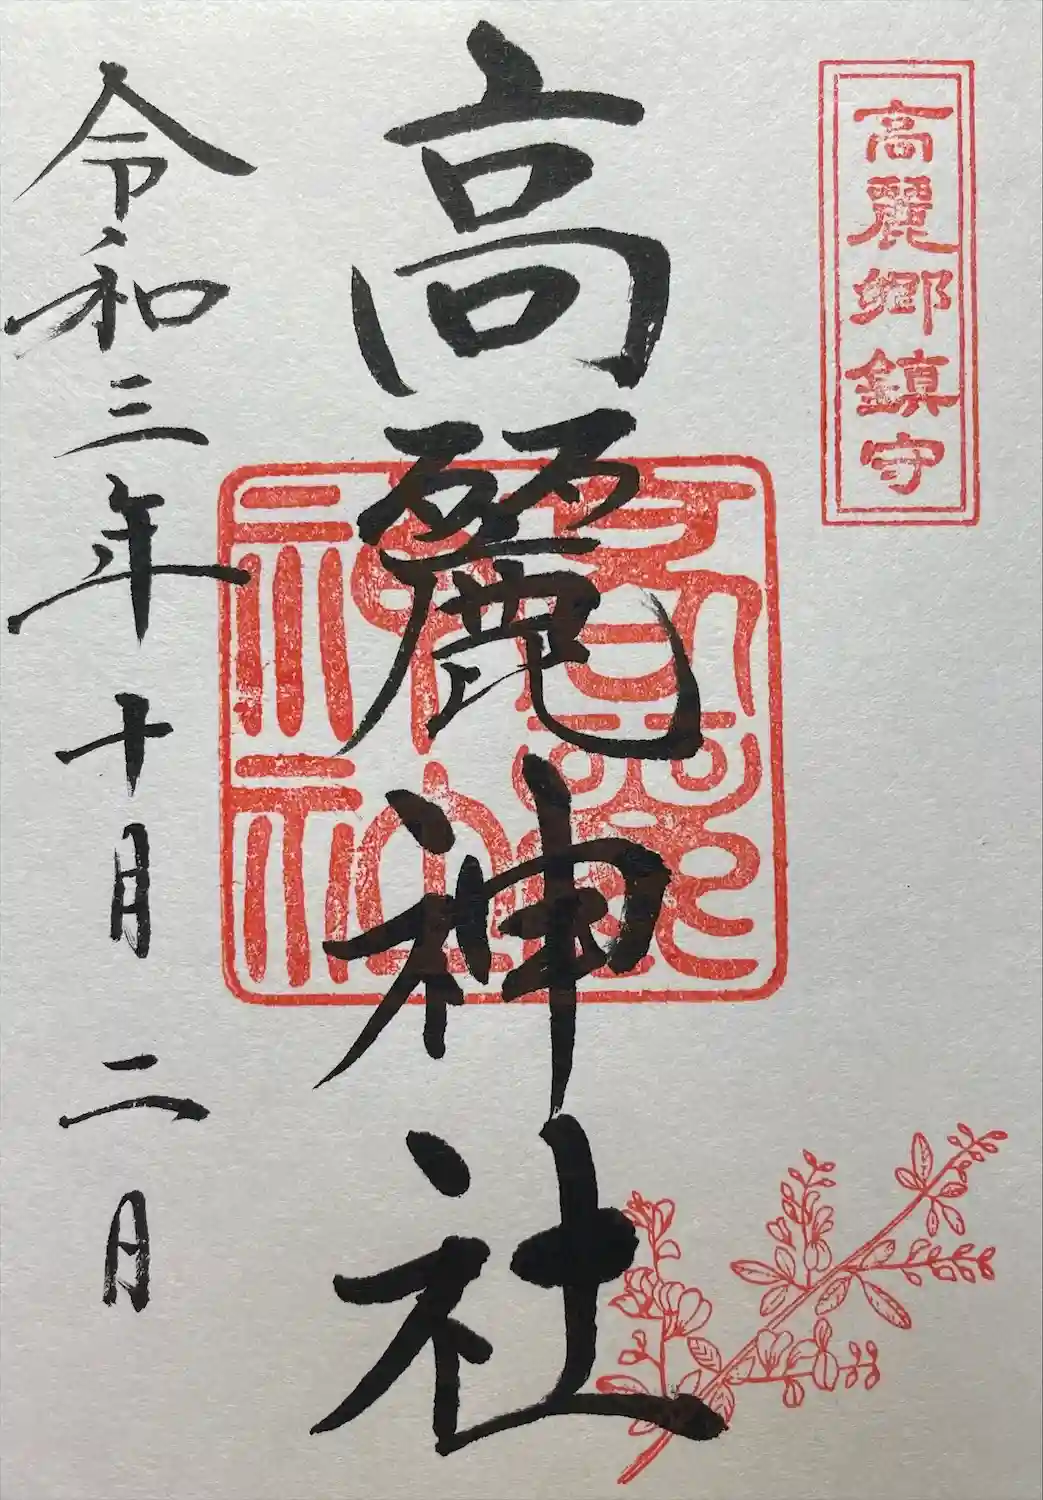 高麗郷鎮守
高麗神社
高麗神社
令和三年十月二月